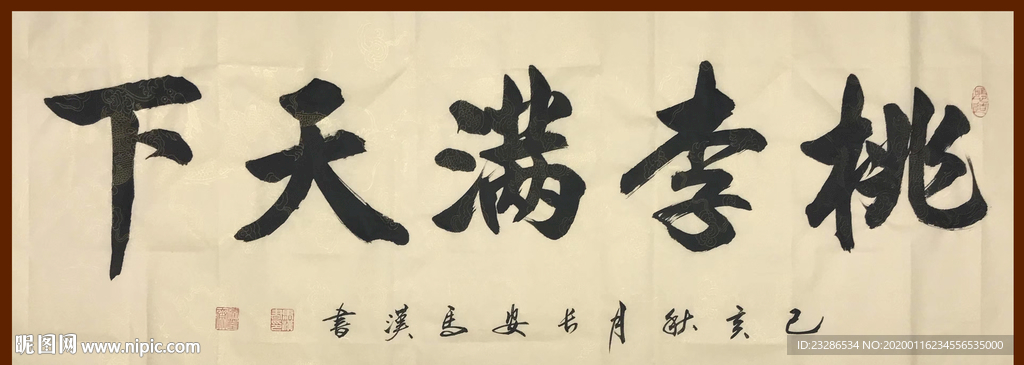 桃李满天下
己亥秋月长安马汉书
昵图网 www.nipic.com
ID:23286534 NO:20200116234556535000